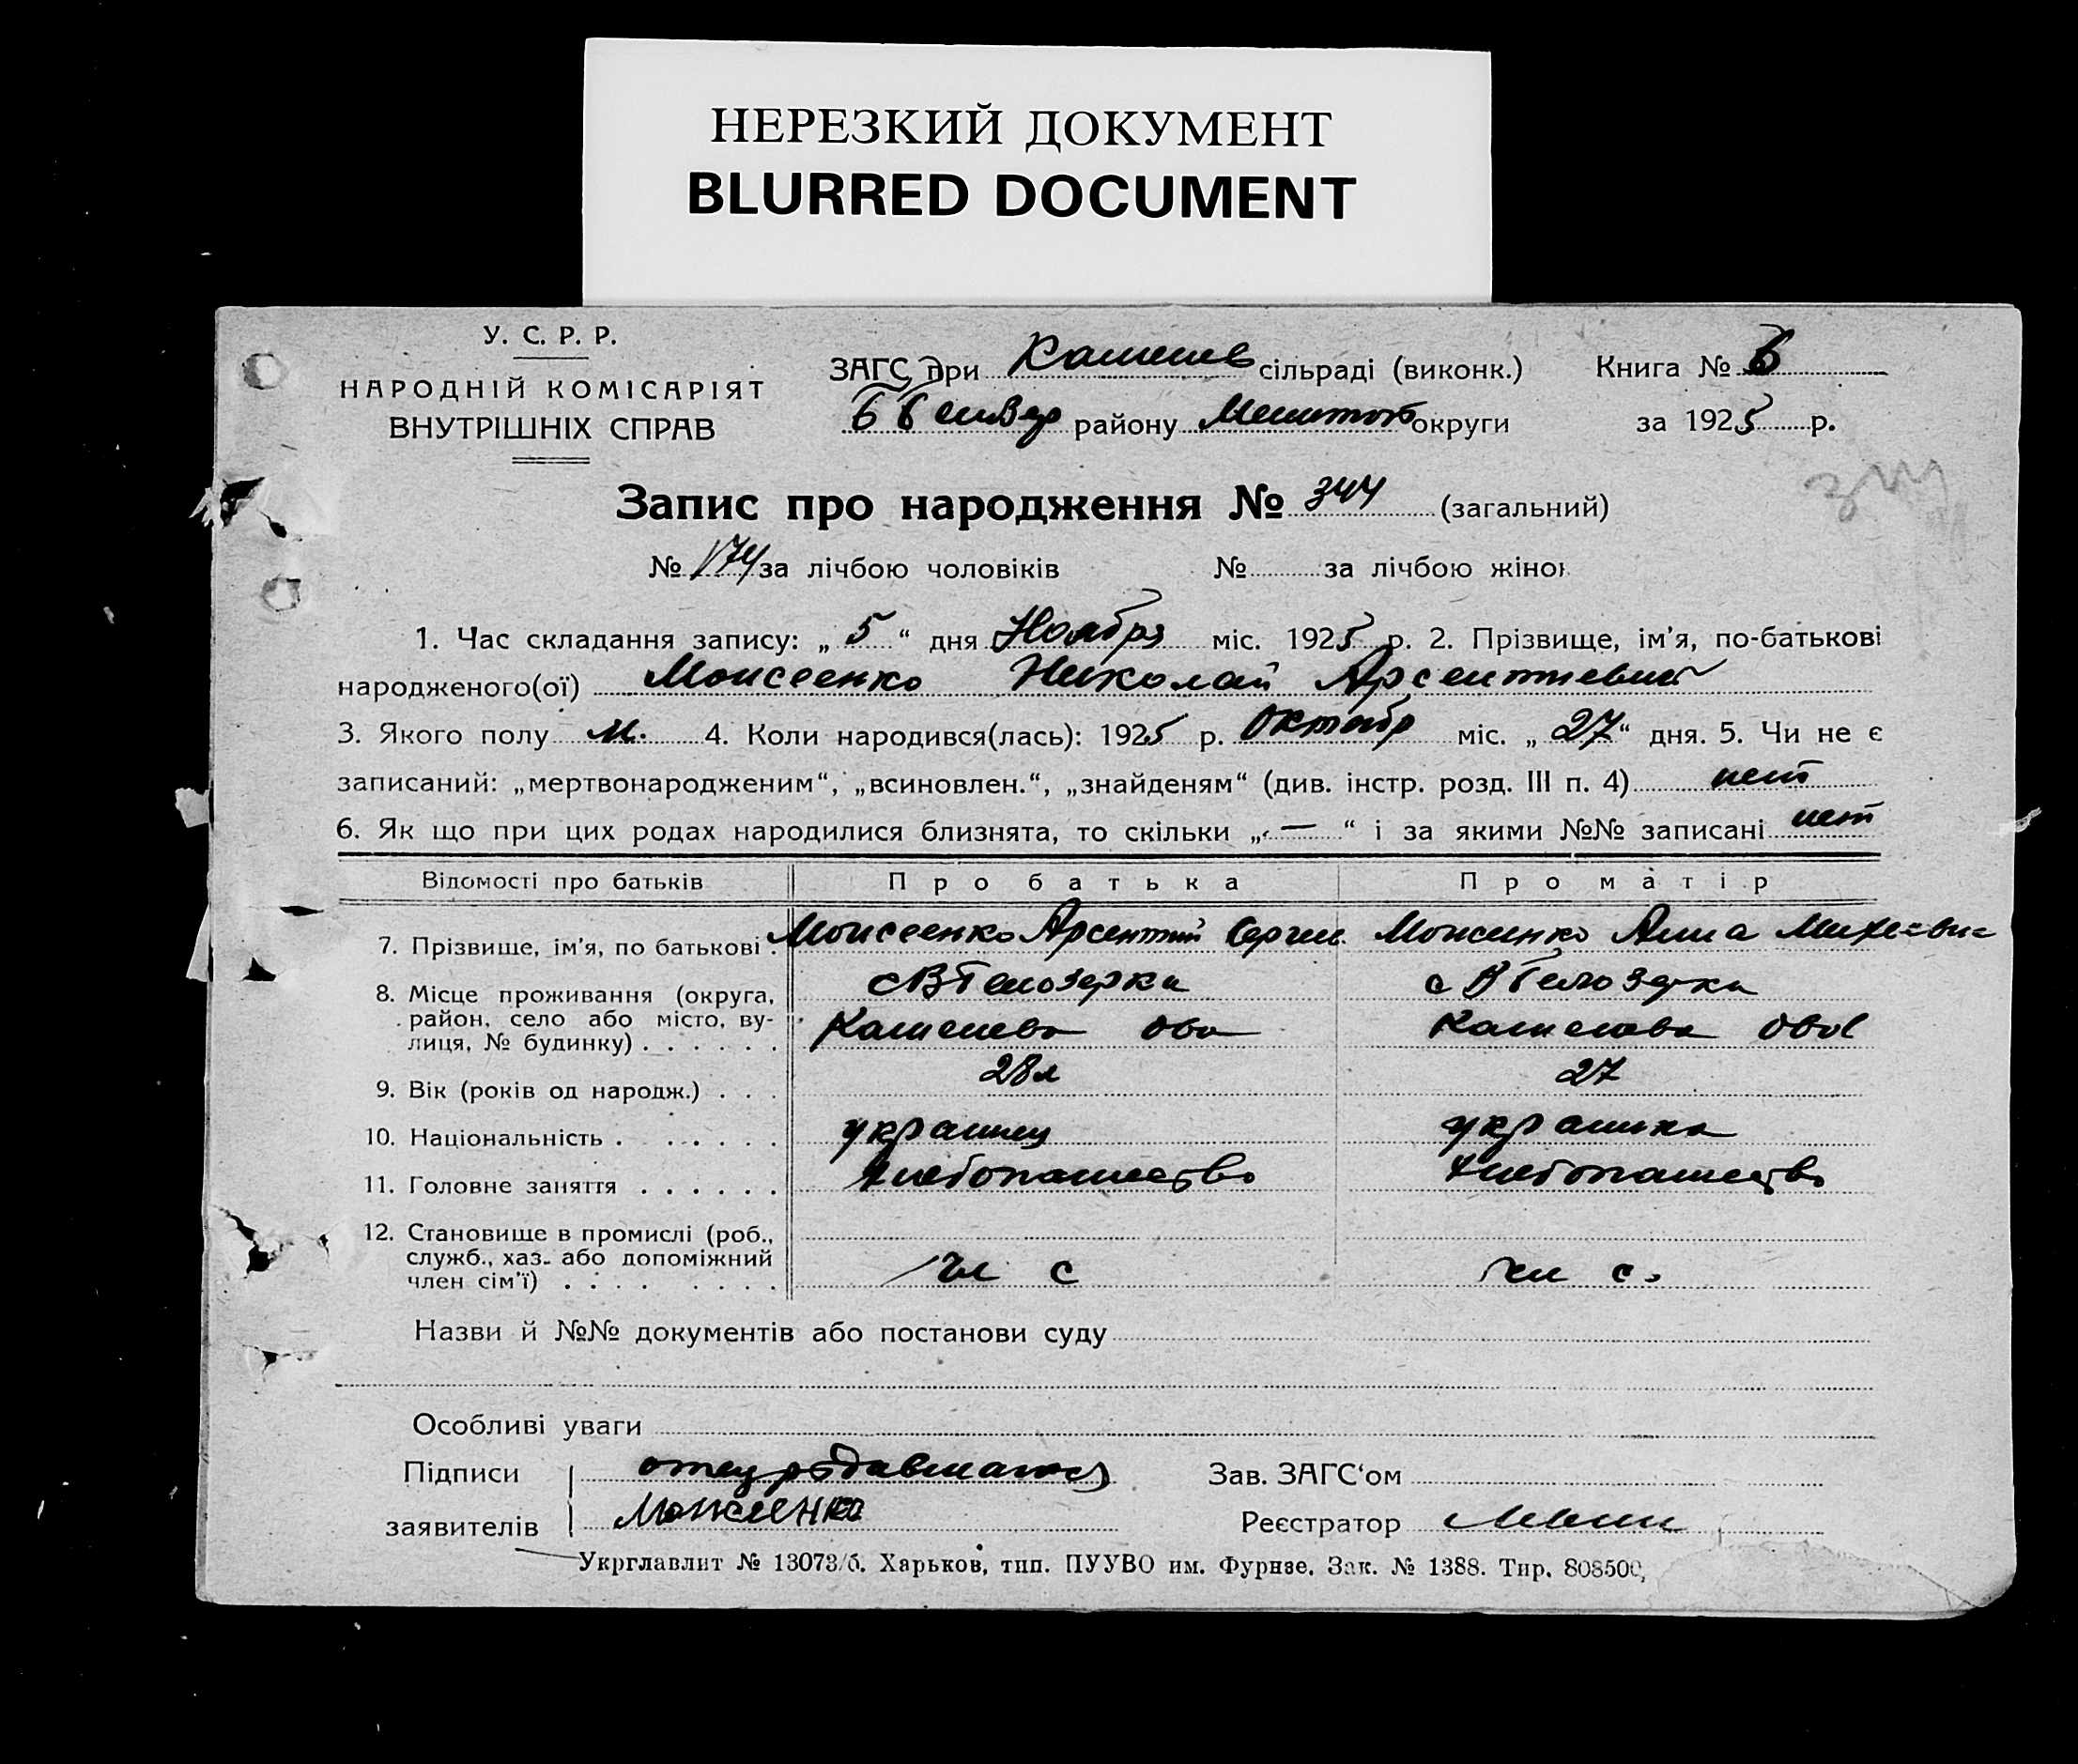 НЕРЕЗКИЙ ДОКУМЕНТ
BLURRED DOCUMENT
У. С. Р. Р.
НАРОДНІЙ КОМІСАРІЯТ
ВНУТРІШНІХ СПРАВ
ЗАГС при сільраді (виконк.)
району округи
Книга № 6
за 1925 р.
Запис про народження № 344 (загальний)
№ 174 за лічбою чоловіків № за лічбою жінок
1. Час складання запису: „ 5 “ дня Ноября міс. 1925 р. 2. Прізвище, ім'я, по-батькові
народженого(ої) Моисеенко Николай Арсентиевич
3. Якого полу м. 4. Коли народився(лась): 1925 р. Октябр міс. „ 27 “ дня. 5. Чи не є
записаний: „мертвонародженим“, „всиновлен.“, „знайденям“ (див. інстр. розд. III п. 4) нет
6. Як що при цих родах народилися близнята, то скільки „ — “ і за якими №№ записані нет
Відомості про батьків Про батька Про матір
7. Прізвище, ім'я, по батькові . Моисеенко Арсентий Сергеев Моисеенко Анна
8. Місце проживання (округа, с В Белозерка с В Белозерка
район, село або місто, ву-
лиця, № будинку) . . . . . .
9. Вік (років од народж.) . . . 28 л 27
10. Національність . . . . . . украинец украинка
11. Головне заняття . . . . . . хлебопашество хлебопашество
12. Становище в промислі (роб.,
служб., хаз. або допоміжний
член сім'ї) . . . . . . . . чл с чл с.
Назви й №№ документів або постанови суду
Особливі уваги
Підписи отец Зав. ЗАГС‘ом
заявителів Моисеенко Реєстратор
Укрглавлит № 13073/б. Харьков, тип. ПУУВО им. Фурнзе. Зак. № 1388. Тир. 808500,